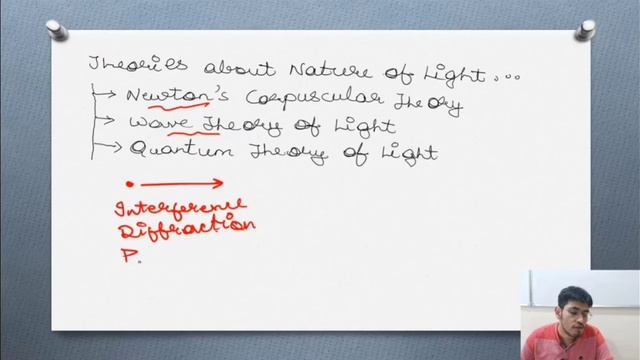 Theories about Nature of Light....
Newton's Corpuscular Theory
Wave Theory of Light
Quantum Theory of Light
Interference
Diffraction
P